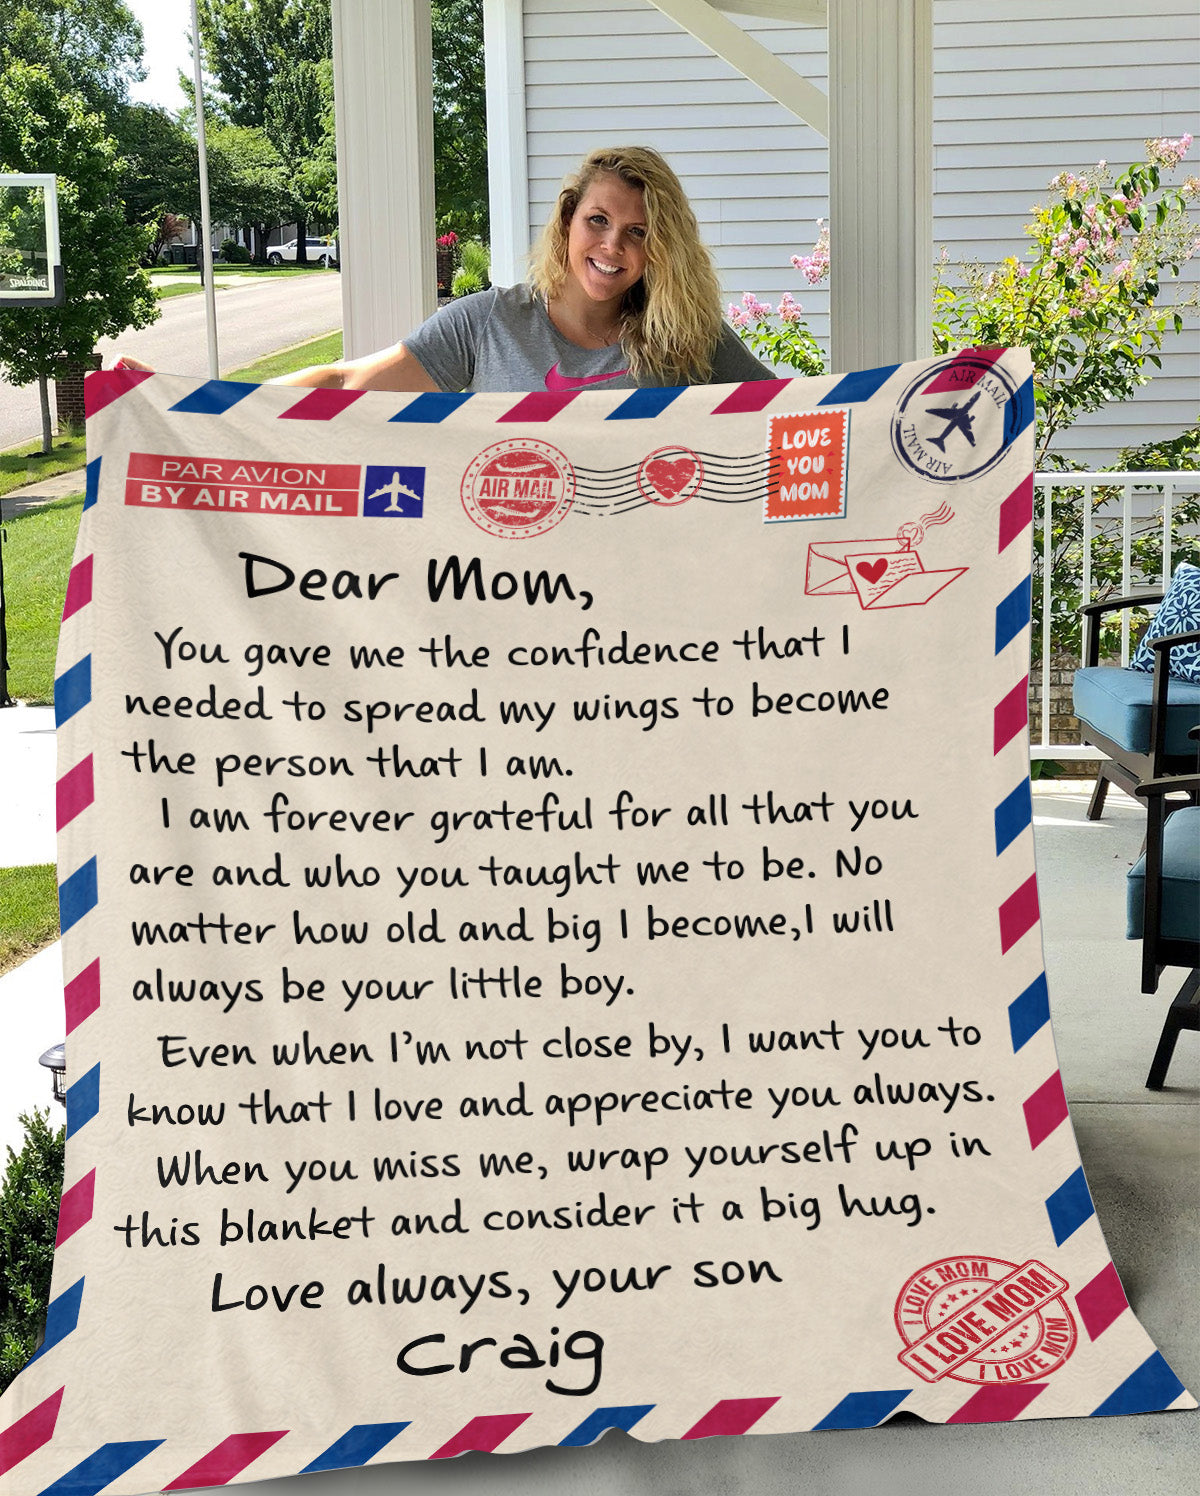 SPALDING
PAR AVION
BY AIR MAIL
AIR MAIL
LOVE
YOU
MOM
AIR MAIL
AIR MAIL
Dear Mom,
You gave me the confidence that I
needed to spread my wings to become
the person that I am.
I am forever grateful for all that you
are and who you taught me to be. No
matter how old and big I become,I will
always be your little boy.
Even when I'm not close by, I want you to
know that I love and appreciate you always.
When you miss me, wrap yourself up in
this blanket and consider it a big hug.
Love always, your son
Craig
I LOVE MOM
I LOVE MOM
I LOVE MOM